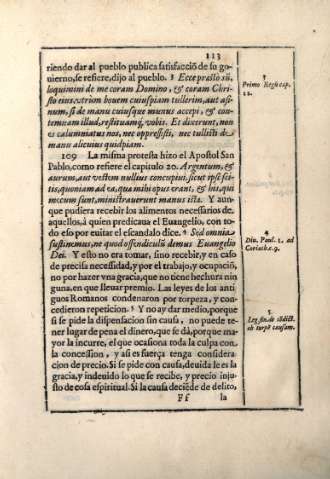 113
riendo dar al pueblo publica satisfacciõ de su go-
uierno, se refiere, dijo al pueblo. 3 Ecce præsto sũ,
loquimini de me coram Domino, & coram Chri-
sto eius: vtrùm bouem cuiuspiam tullerim, aut asi-
num, si de manu cuiusque munus accepi, & con-
temnam illud, restituamq; vobis. Et dixerunt, non
es calumniatus nos, nec oppressisti, nec tullisti de
manu alicuius quidpiam.
109 La misma protesta hizo el Apostol San
Pablo, como refiere el capitulo 20. Argentum, &
aurum, aut vestem nullius concupiui, sicut ipsi sci-
tis, quoniam ad ea, quæ mihi opus erant, & his, qui
mecum sunt, ministrauerunt manus istæ. Y aun-
que pudiera recebir los alimentos necessarios de
aquellos, à quien predicaua el Euangelio, con to-
do eso por euitar el escandalo dice. 4 Sed omnia
sustinemus, ne quod offendiculũ demus Euangelio
Dei. Y esto no era tomar, sino recebir, y en caso
de precisa necessidad, y por el trabajo, y ocupaciõ,
no por hazer vna gracia, que no tiene hechura nin
guna, en que lleuar premio. Las leyes de los anti-
guos Romanos condenaron por torpeza, y con-
cedieron repeticion. 5 Y no ay dar medio, porque
si se pide la dispensacion sin causa, no puede te-
ner lugar de pena el dinero, que se dà, porque ma-
yor la incurre, el que ocasiona toda la culpa con
la concession, y assi es fuerça tenga considera
cion de precio. Si se pide con causa, deuida le es la
gracia, y indeuido lo que se recibe, y precio inju-
sto de cosa espiritual. Si la causa deciède de delito,
Ff la
3
Primo Regũ cap.
12.
4
Diu. Paul. 1. ad
Corinth. c. 9.
5
Leg. fin. de cõdict.
ob turpē causam.